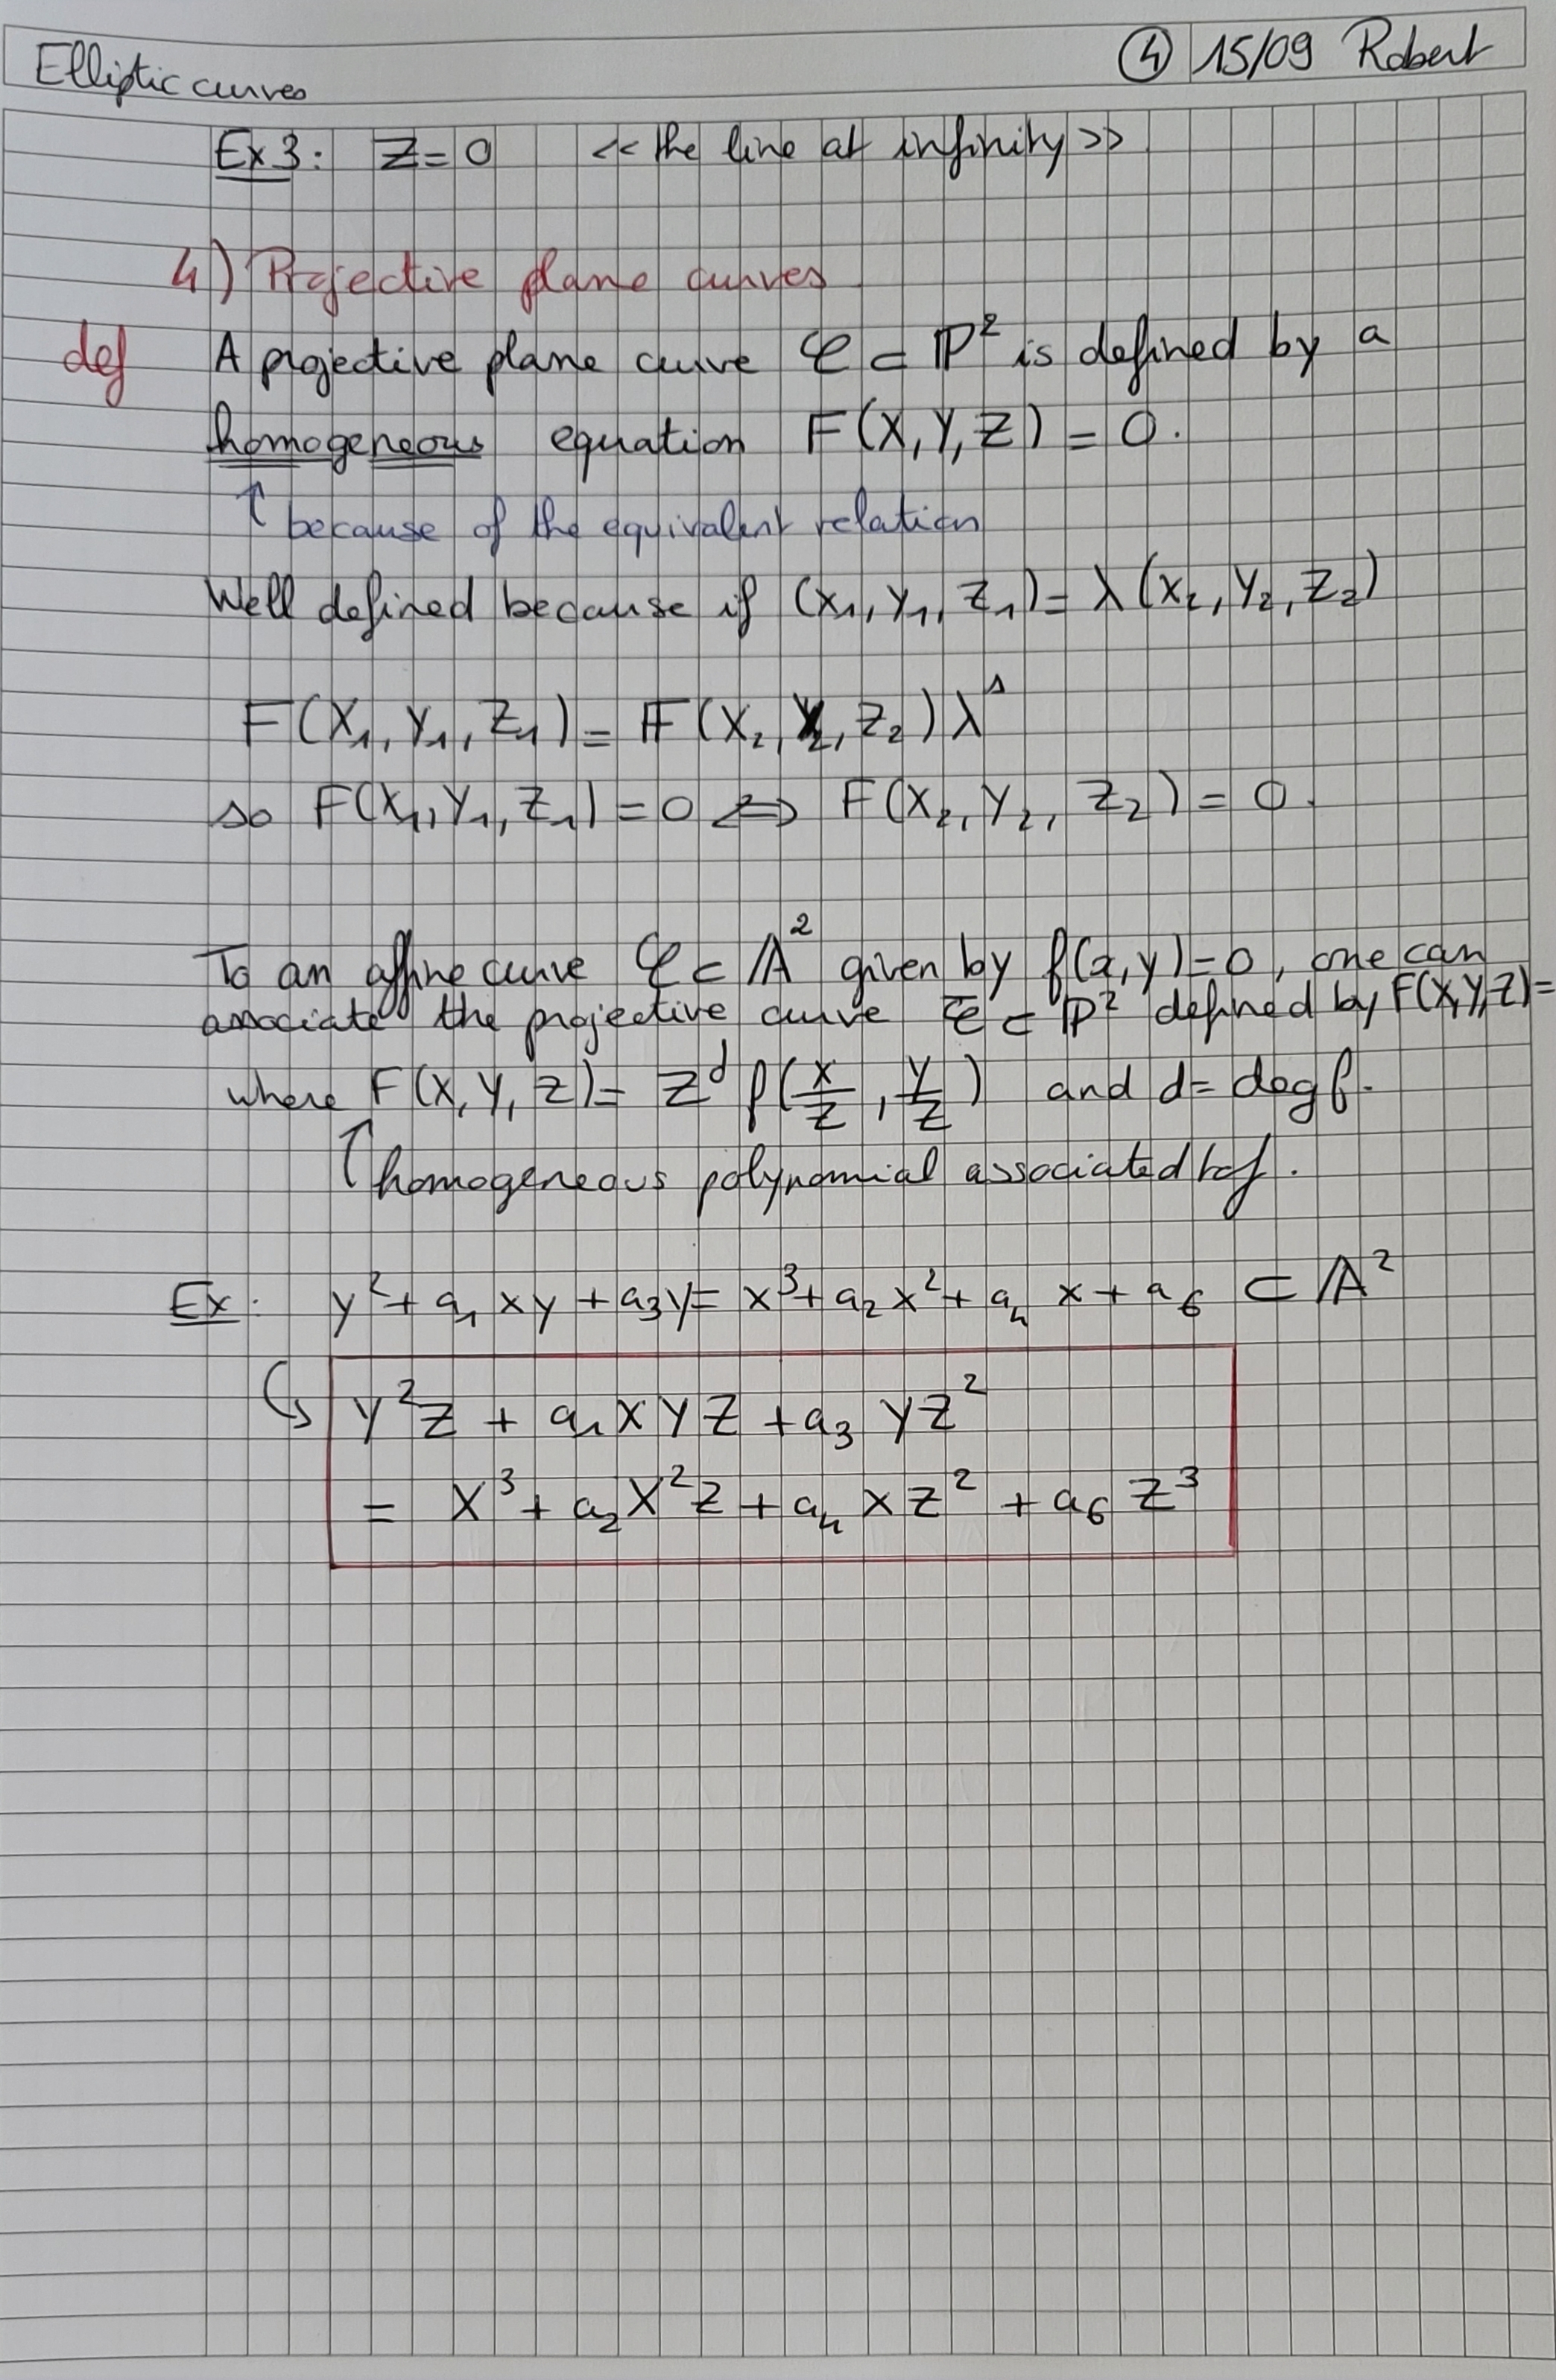 Elliptic curves ④ 15/09 Robert
Ex 3: Z=0 << the line at infinity >>
4) Projective plane curves
def A projective plane curve 𝒞 ⊂ ℙ² is defined by a
homogeneous equation F(X,Y,Z) = 0.
↑ because of the equivalent relation
Well defined because if (X₁,Y₁,Z₁)= λ(X₂,Y₂,Z₂)
F(X₁,Y₁,Z₁)= F(X₂,Y₂,Z₂)λ
so F(X₁,Y₁,Z₁)=0 ⇔ F(X₂,Y₂,Z₂)=0.
To an affine curve 𝒞 ⊂ 𝔸² given by f(x,y)=0, one can
associate the projective curve 𝒞̅ ⊂ ℙ² defined by F(X,Y,Z)=
where F(X,Y,Z)= Z^d f(X/Z, Y/Z) and d= deg f.
↑ homogeneous polynomial associated to f.
Ex: y²+a₁xy+a₃y= x³+a₂x²+a₄x+a₆ ⊂ 𝔸²
↳ Y²Z + a₁XYZ + a₃YZ²
= X³+a₂X²Z+a₄XZ²+a₆Z³